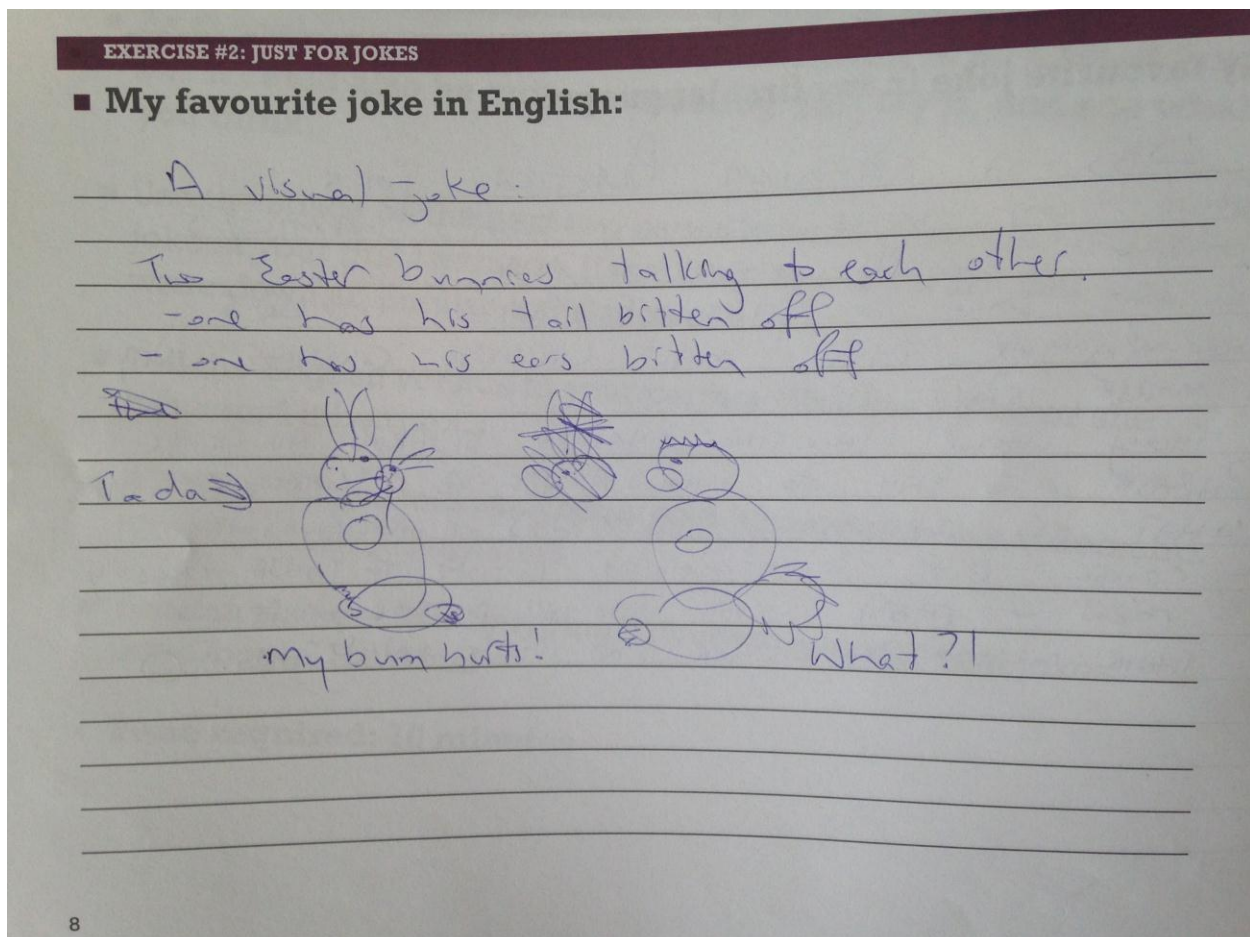 EXERCISE #2: JUST FOR JOKES
My favourite joke in English:
A visual joke:
Two Easter bunnies talking to each other.
-one has his tail bitten off
- one has his ears bitten off
Tada
My bum hurts!
What?!
8